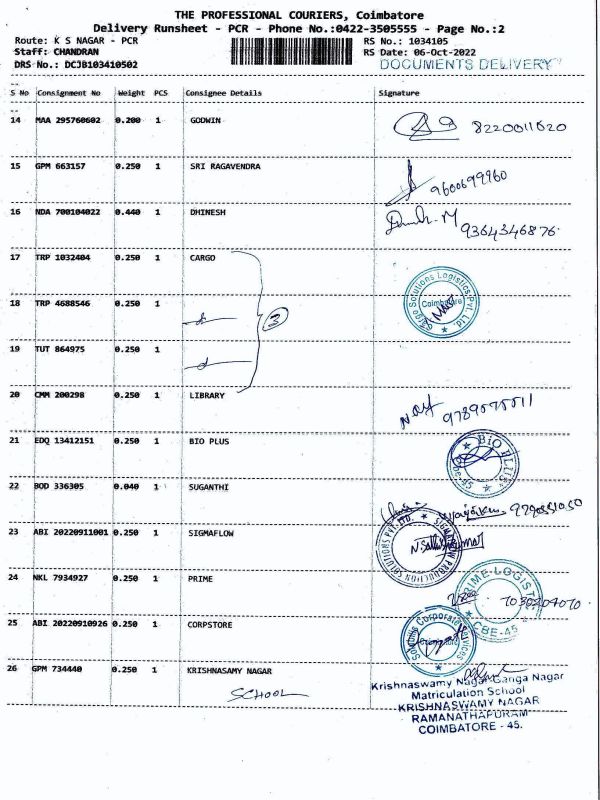 THE PROFESSIONAL COURIERS, Coimbatore
Delivery Runsheet - PCR - Phone No.:0422-3505555 - Page No.:2
Route: K S NAGAR - PCR RS No.: 1034105
Staff: CHANDRAN RS Date: 06-Oct-2022
DRS No.: DCJB103410502 DOCUMENTS DELIVERY
S No Consignment No Weight PCS Consignee Details Signature
14 MAA 295760602 0.200 1 GODWIN 8220011620
15 GPM 663157 0.250 1 SRI RAGAVENDRA 9600699960
16 NDA 700104022 0.440 1 DHINESH 9364346876
17 TRP 1032404 0.250 1 CARGO
Cargo Solutions Logistics Pvt. Ltd.
Coimbatore
18 TRP 4688546 0.250 1
3
19 TUT 864975 0.250 1
20 CMM 200298 0.250 1 LIBRARY
21 EDQ 13412151 0.250 1 BIO PLUS
BIO PLUS
22 BOD 336305 0.040 1 SUGANTHI
23 ABI 20220911001 0.250 1 SIGMAFLOW
SIGMAFLOW PRODUCTION SOLUTIONS PVT. LTD.
24 NKL 7934927 0.250 1 PRIME
PRIME LOGISTI
CBE-45
25 ABI 20220910926 0.250 1 CORPSTORE
Solutions Corporate Services
Coimbatore
26 GPM 734440 0.250 1 KRISHNASAMY NAGAR
SCHOOL
Krishnaswamy Nagar Ganga Nagar
Matriculation School
KRISHNASWAMY NAGAR
RAMANATHAPURAM
COIMBATORE - 45.